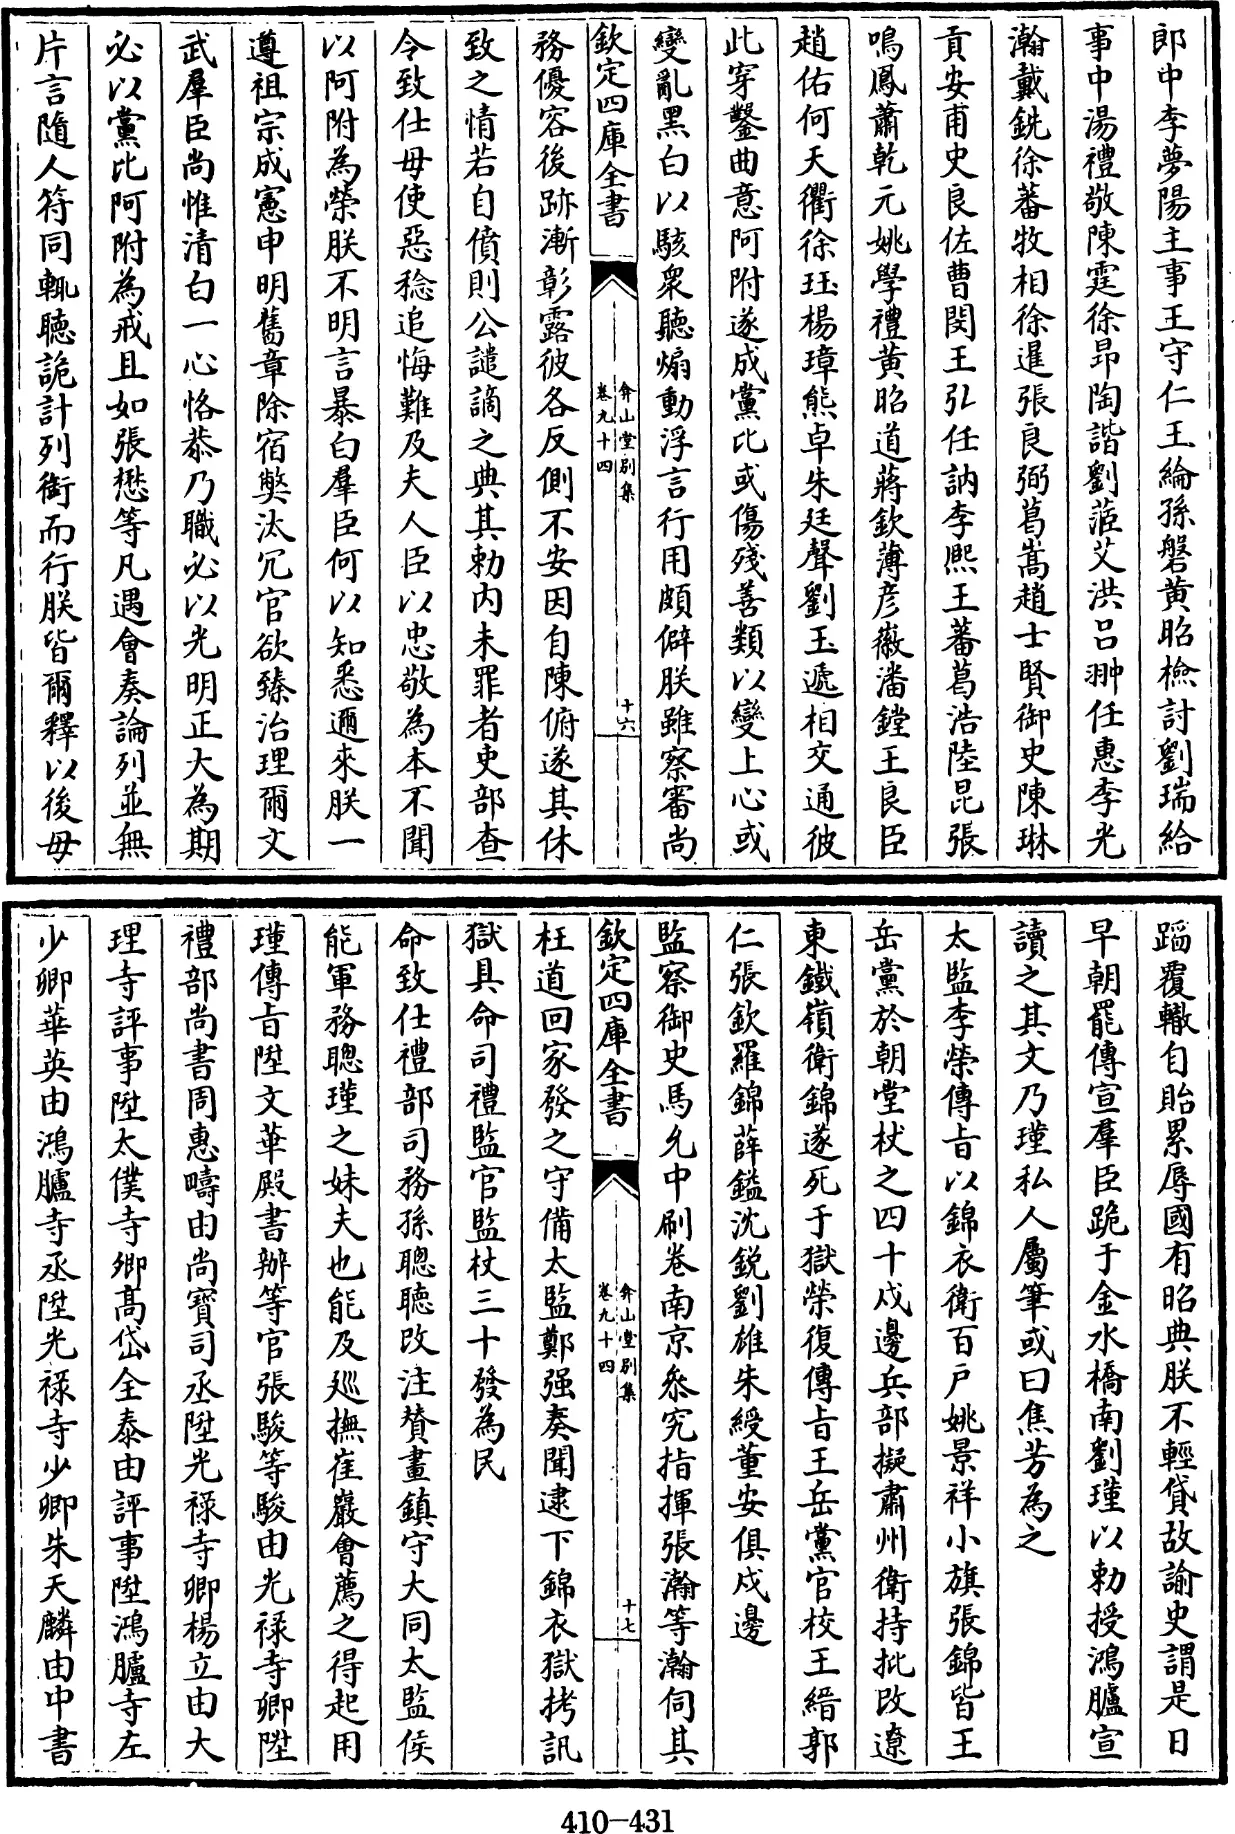 郎中李夢陽主事王守仁王綸孫磐黄昭檢討劉瑞給
事中湯禮敬陳霆徐昂陶諧劉菃艾洪吕翀任惠李光
瀚戴銑徐蕃牧相徐暹張良弼葛嵩趙士賢御史陳琳
貢安甫史良佐曹閔王弘任訥李熙王蕃葛浩陸昆張
鳴鳳蕭乾元姚學禮黄昭道蔣欽薄彦徽潘鏜王良臣
趙佑何天衢徐珏楊璋熊卓朱廷聲劉玉遞相交通彼
此穿鑿曲意阿附遂成黨比或傷殘善類以變上心或
變亂黑白以駭衆聽煽動浮言行用頗僻朕雖察審尚
欽定四庫全書
弇山堂别集
卷九十四
十六
務優容後跡漸彰露彼各反側不安因自陳俯遂其休
致之情若自僨則公譴謫之典其勅内未罪者吏部查
令致仕毋使惡稔追悔難及夫人臣以忠敬為本不聞
以阿附為榮朕不明言暴白羣臣何以知悉邇來朕一
遵祖宗成憲申明舊章除宿弊汰冗官欲臻治理爾文
武羣臣尚惟清白一心恪恭乃職必以光明正大為期
必以黨比阿附為戒且如張懋等凡遇會奏論列並無
片言隨人符同輒聽詭計列銜而行朕皆爾釋以後毋
蹈覆轍自貽累辱國有昭典朕不輕貸故諭史謂是日
早朝罷傳宣羣臣跪于金水橋南劉瑾以勅授鴻臚宣
讀之其文乃瑾私人屬筆或曰焦芳為之
太監李榮傳旨以錦衣衛百户姚景祥小旗張錦皆王
岳黨於朝堂杖之四十戍邊兵部擬肅州衛持批改遼
東鐵嶺衛錦遂死于獄榮復傳旨王岳黨官校王縉郭
仁張欽羅錦薛鎰沈鋭劉雄朱綬董安俱戍邊
監察御史馬允中刷卷南京叅究指揮張瀚等瀚伺其
欽定四庫全書
弇山堂别集
卷九十四
十七
枉道回家發之守備太監鄭强奏聞逮下錦衣獄拷訊
獄具命司禮監官監杖三十發為民
命致仕禮部司務孫聰聽改注賛畫鎮守大同太監侯
能軍務聰瑾之妹夫也能及廵撫崔巖會薦之得起用
瑾傳旨陞文華殿書辦等官張駿等駿由光禄寺卿陞
禮部尚書周惠疇由尚寳司丞陞光禄寺卿楊立由大
理寺評事陞太僕寺卿髙岱仝泰由評事陞鴻臚寺左
少卿華英由鴻臚寺丞陞光禄寺少卿朱天麟由中書
410-431